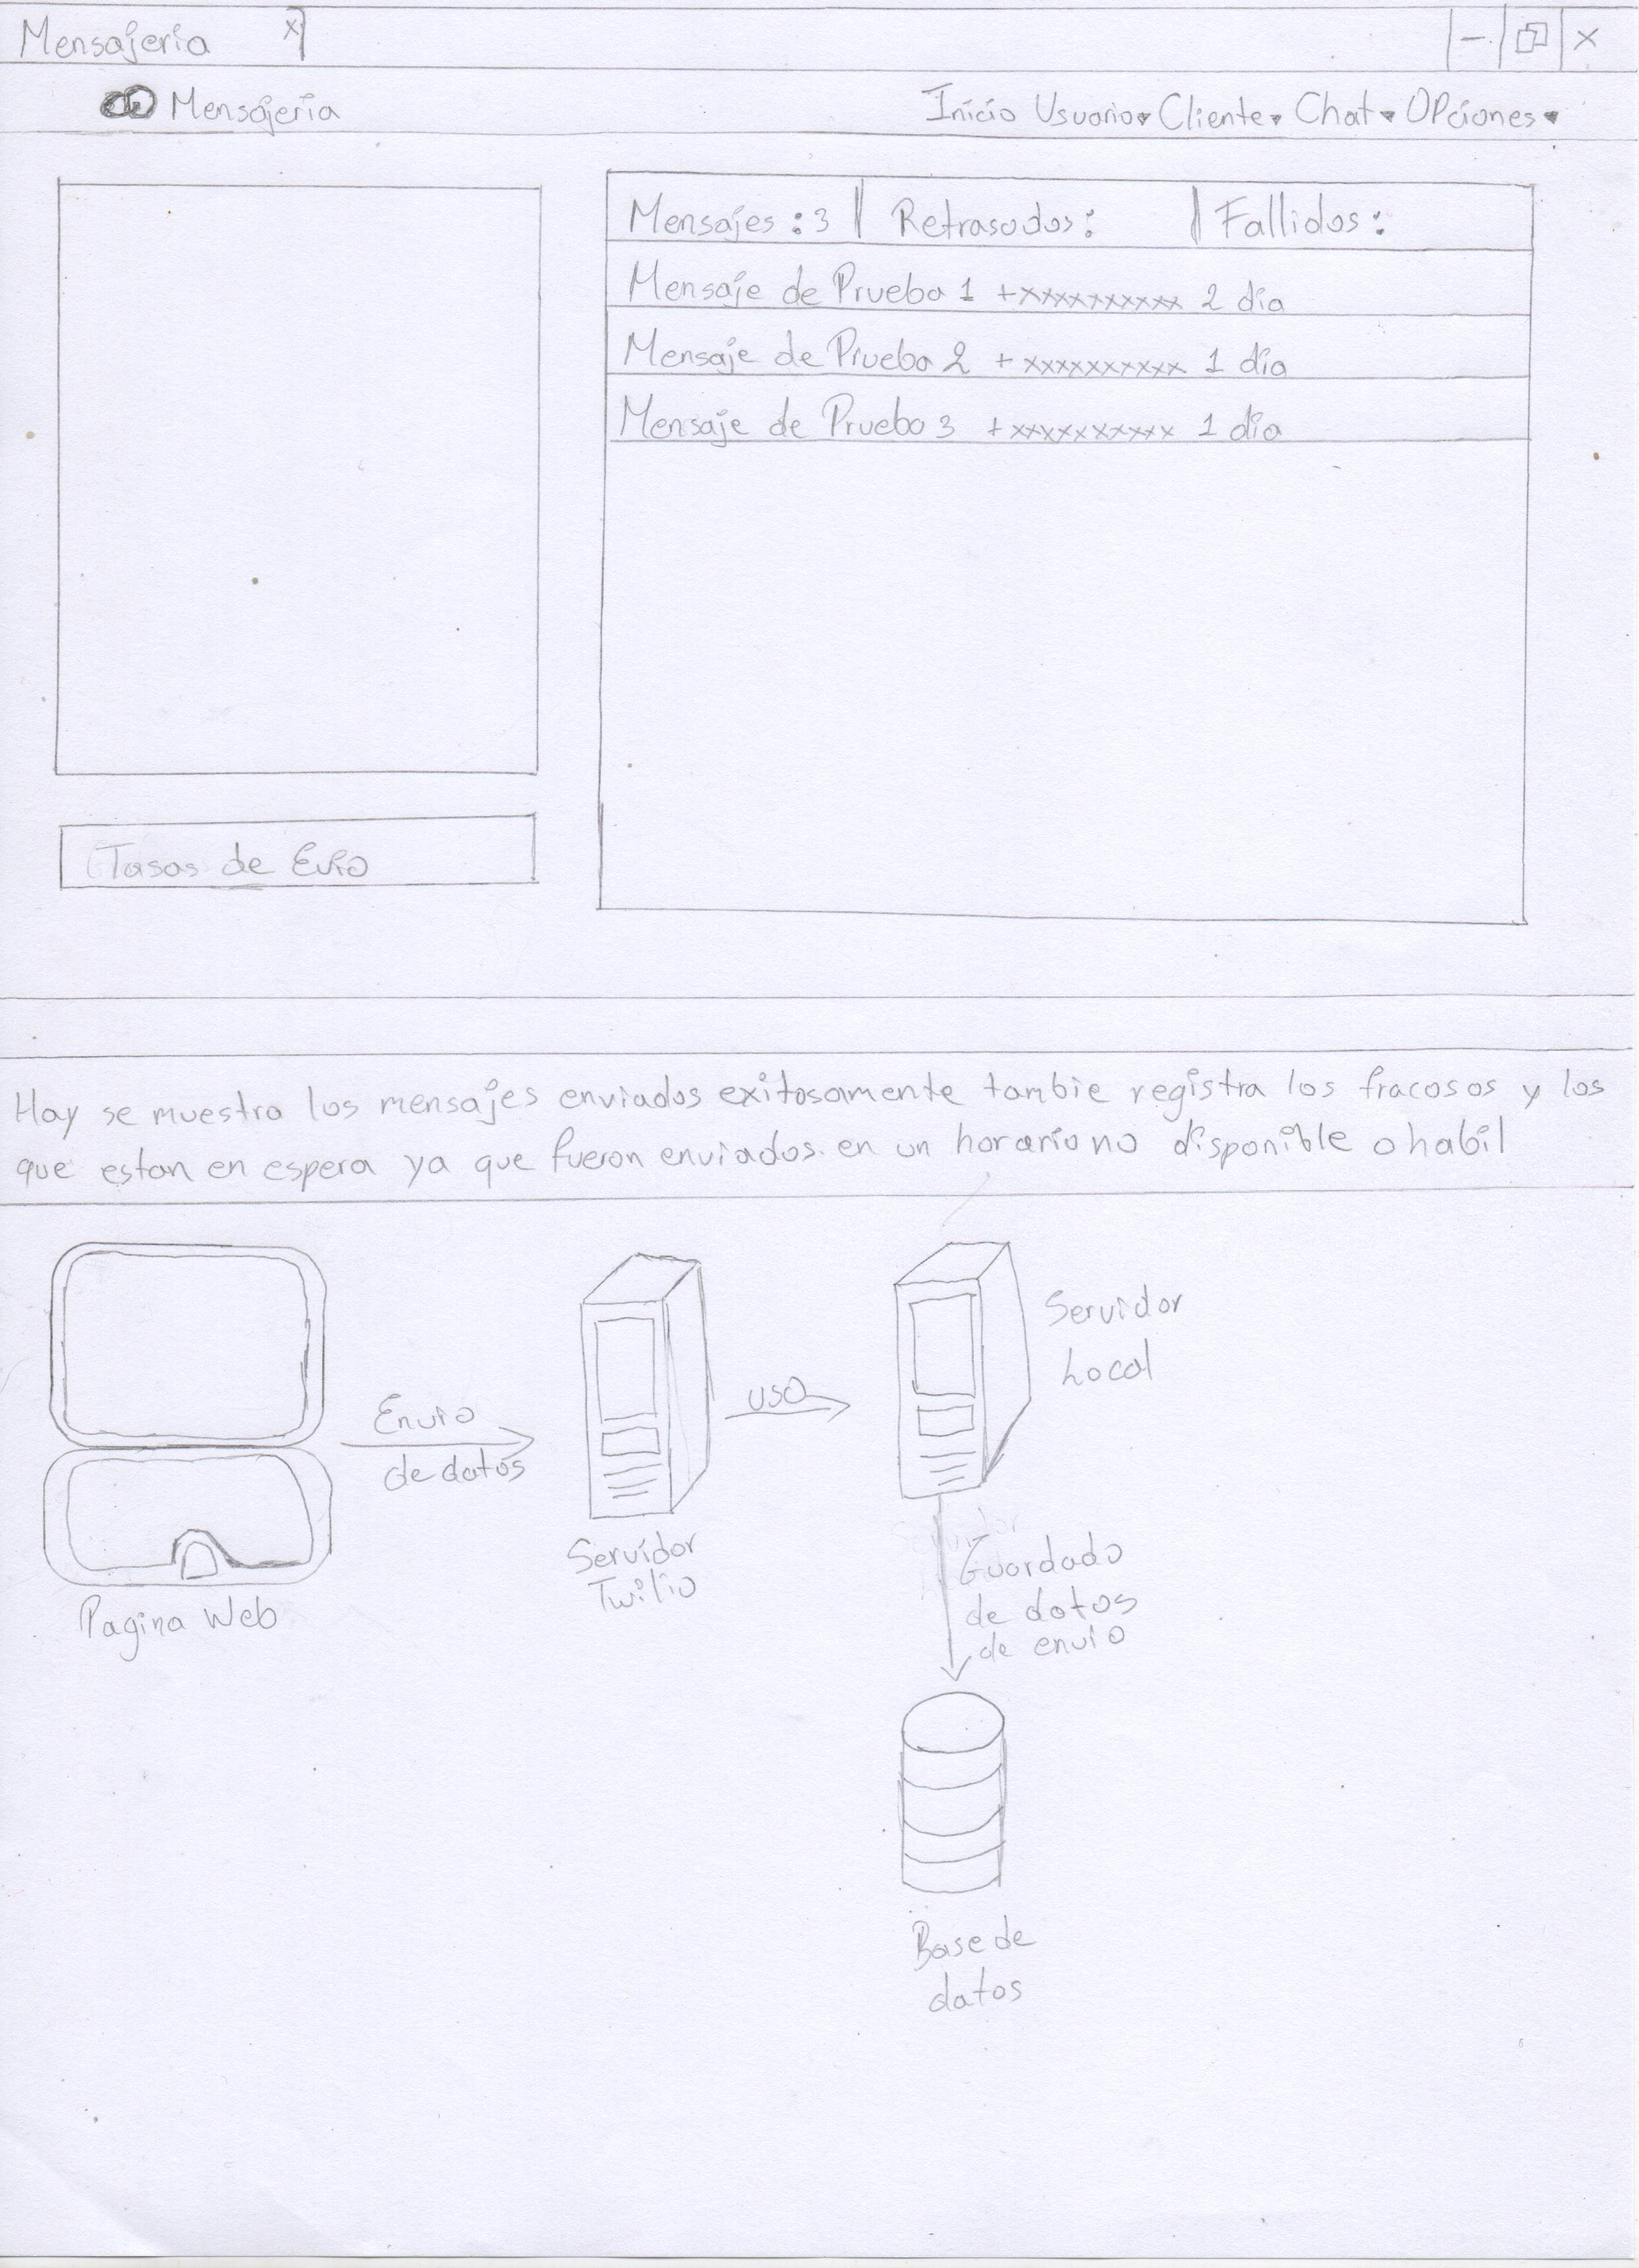 Mensajeria x
Mensajeria Inicio Usuario Cliente Chat OPciones
Mensajes : 3 Retrasados: Fallidos:
Mensaje de Prueba 1 +xxxxxxxxxx 2 día
Mensaje de Prueba 2 +xxxxxxxxxx 1 día
Mensaje de Prueba 3 +xxxxxxxxxx 1 día
Tasas de Evio
Hay se muestra los mensajes enviados exitosamente tambie registra los fracasos y los
que estan en espera ya que fueron enviados en un horario no disponible o habil
Envio
de datos
Pagina Web
Servidor
Twilio
uso
Servidor
Local
Guardado
de datos
de envio
Base de
datos